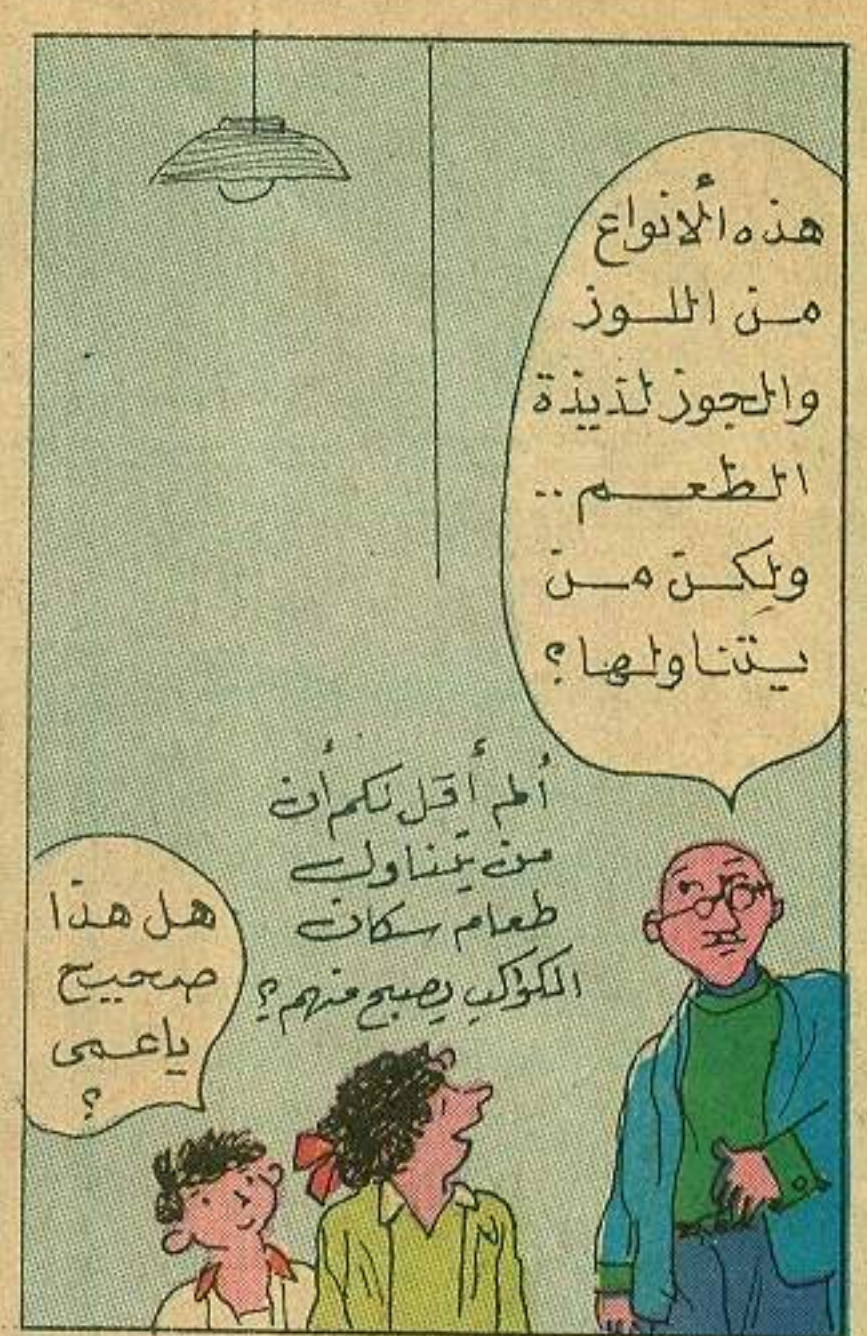 هذه الأنواع
من اللوز
والجوز لذيذة
الطعم ..
ولكن من
يتناولها؟
ألم أقل لكم أن
من يتناول
طعام سكان
الكواكب يصبح منهم؟
هل هذا
صحيح
ياعمى
؟